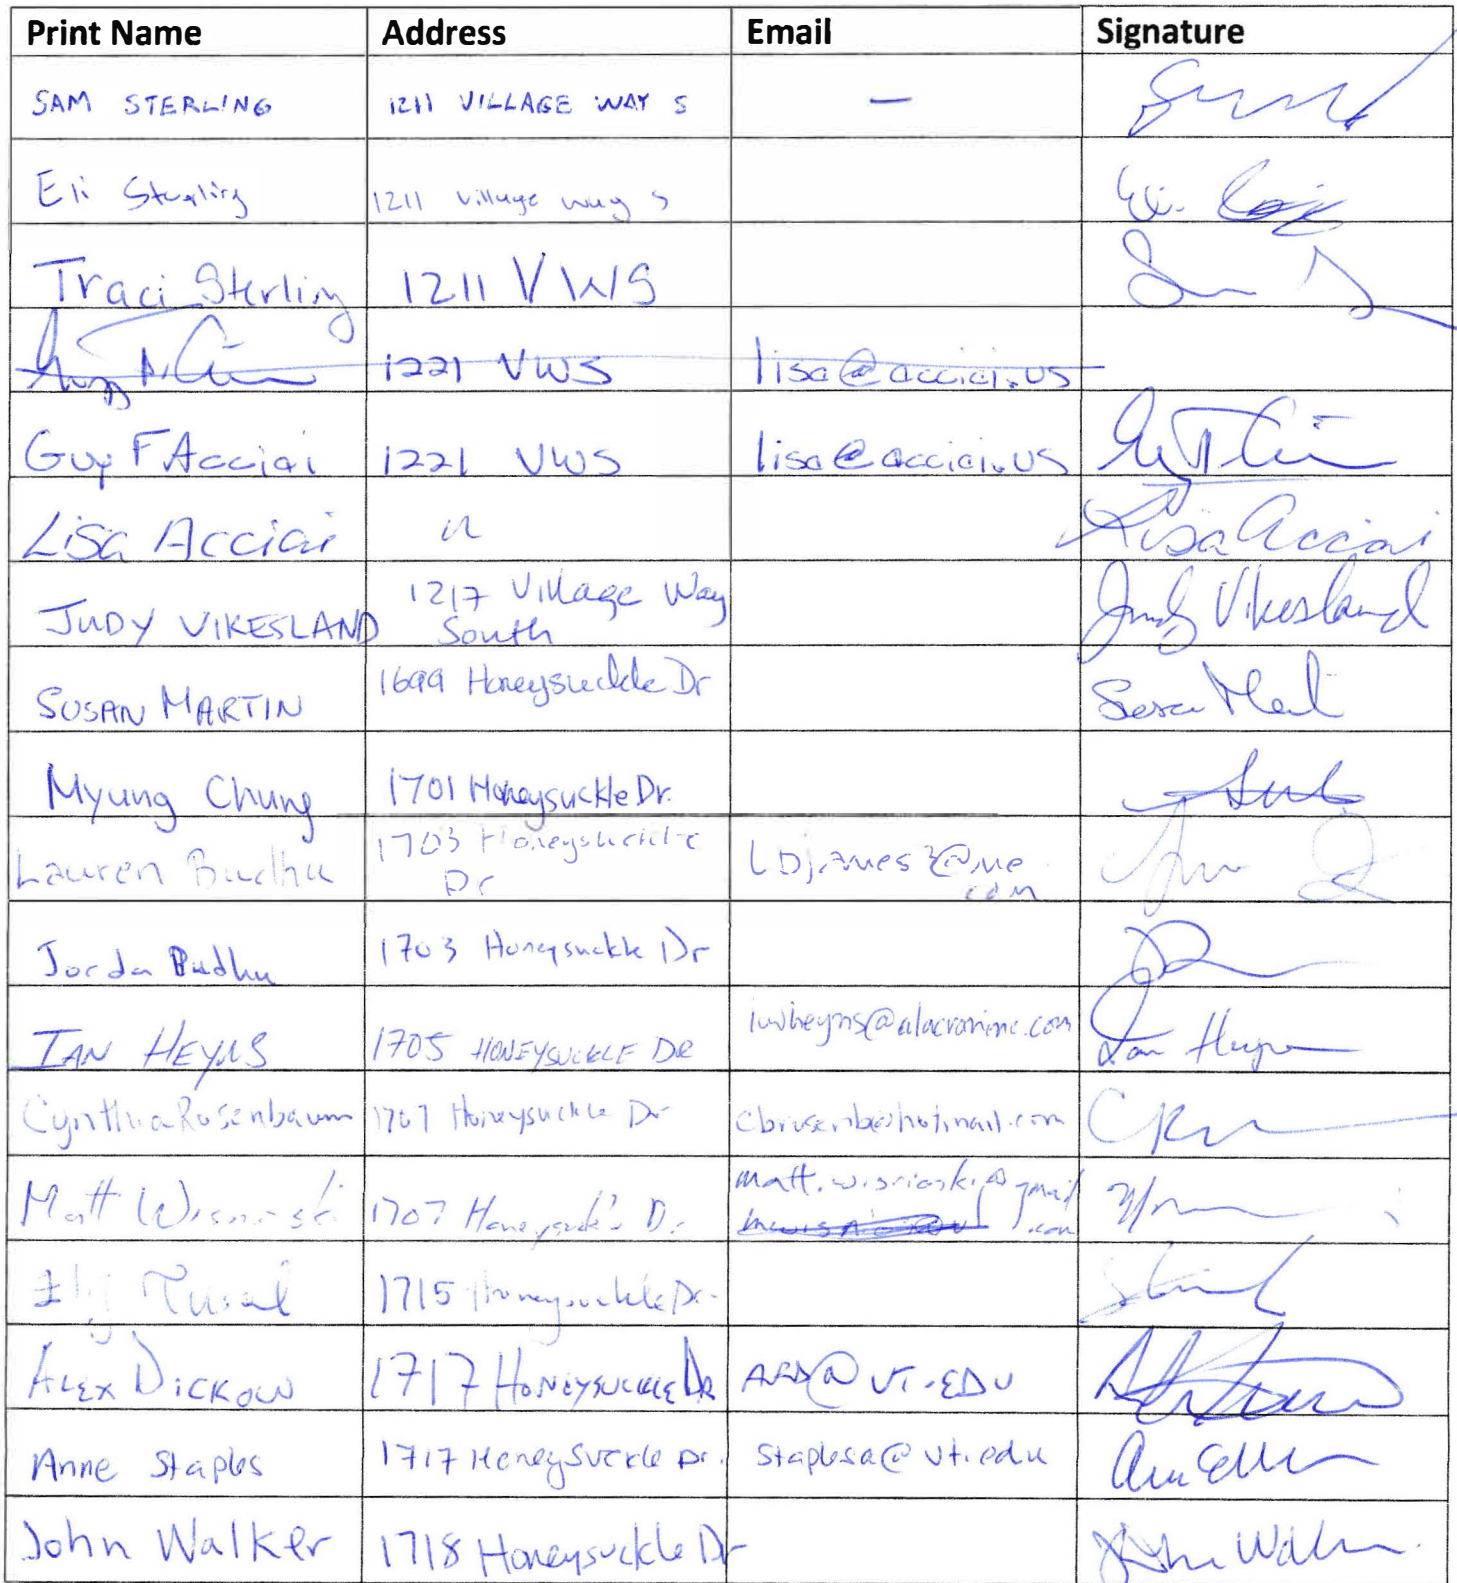 Print Name Address Email Signature
SAM STERLING 1211 VILLAGE WAY S —
Eli Sterling 1211 village way S
Traci Sterling 1211 VWS
1221 VWS lisa@acciai.us
Guy F Acciai 1221 VWS lisa@acciai.us
Lisa Acciai " Lisa Acciai
JUDY VIKESLAND 1217 Village Way South Judy Vikesland
SUSAN MARTIN 1699 Honeysuckle Dr
Myung Chung 1701 Honeysuckle Dr.
Lauren Budhu 1703 Honeysuckle Dr LDjames3@me.com
Jordan Budhu 1703 Honeysuckle Dr
IAN HEYNS 1705 HONEYSUCKLE DR Ian Heyns
Cynthia Rosenbaum 1707 Honeysuckle Dr cbrosenb@hotmail.com
Matt Wisnioski 1707 Honeysuckle Dr matt.wisnioski@gmail.com
1715 Honeysuckle Dr.
ALEX DICKOW 1717 HONEYSUCKLE DR @VT.EDU
Anne Staples 1717 Honeysuckle Dr. staplesa@vt.edu
John Walker 1718 Honeysuckle Dr John Walker